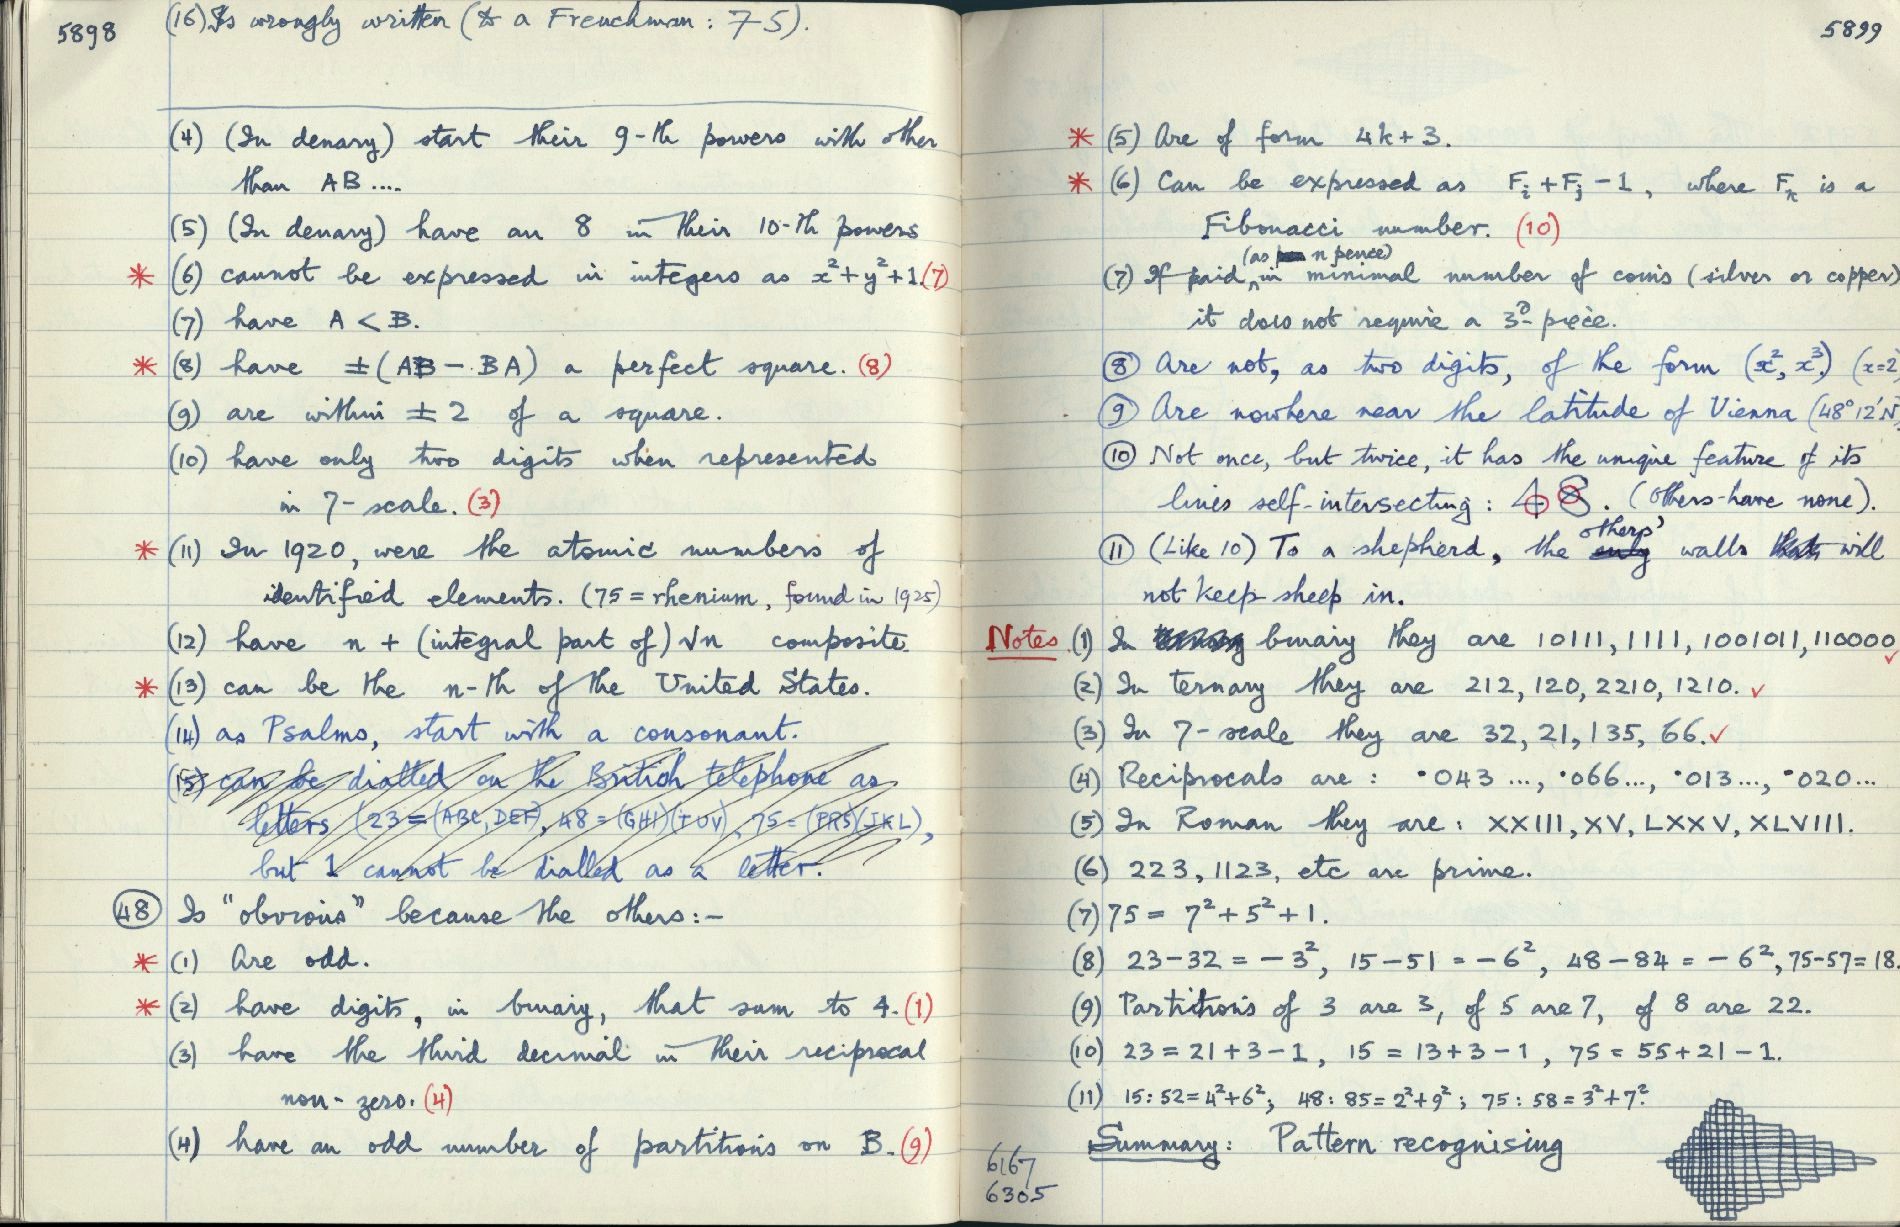 5898
(16) Is wrongly written (to a Frenchman: 75).
(4) (In denary) start their 9-th powers with other
than AB....
(5) (In denary) have an 8 in their 10-th powers
* (6) cannot be expressed in integers as x²+y²+1. (7)
(7) have A < B.
* (8) have ±(AB - BA) a perfect square. (8)
(9) are within ± 2 of a square.
(10) have only two digits when represented
in 7-scale. (3)
* (11) In 1920, were the atomic numbers of
identified elements. (75 = rhenium, found in 1925)
(12) have n + (integral part of) √n composite.
* (13) can be the n-th of the United States.
(14) as Psalms, start with a consonant.
(15) can be dialled on the British telephone as
letters (23 = (ABC, DEF), 48 = (GHI)(TUV), 75 = (PRS)(JKL),
but 1 cannot be dialled as a letter.
48 Is "obvious" because the others:-
* (1) Are odd.
* (2) have digits, in binary, that sum to 4. (1)
(3) have the third decimal in their reciprocal
non-zero. (4)
(4) have an odd number of partitions on B. (9)
5899
* (5) Are of form 4k+3.
* (6) Can be expressed as Fi + Fj - 1, where Fk is a
Fibonacci number. (10)
(as n pence)
(7) If paid, in minimal number of coins (silver or copper)
it does not require a 3d piece.
(8) Are not, as two digits, of the form (x², x³) (x=2)
(9) Are nowhere near the latitude of Vienna (48°12'N)
(10) Not once, but twice, it has the unique feature of its
lines self-intersecting: 48. (Others have none).
(11) (Like 10) To a shepherd, the others' walls will
not keep sheep in.
Notes (1) In binary they are 10111, 1111, 1001011, 110000 ✓
(2) In ternary they are 212, 120, 2210, 1210. ✓
(3) In 7-scale they are 32, 21, 135, 66. ✓
(4) Reciprocals are: ·043..., ·066..., ·013..., ·020...
(5) In Roman they are: XXIII, XV, LXXV, XLVIII.
(6) 223, 1123, etc are prime.
(7) 75 = 7²+5²+1.
(8) 23-32 = -3², 15-51 = -6², 48-84 = -6², 75-57=18.
(9) Partitions of 3 are 3, of 5 are 7, of 8 are 22.
(10) 23 = 21+3-1, 15 = 13+3-1, 75 = 55+21-1.
(11) 15: 52=4²+6²; 48: 85=2²+9²; 75: 58=3²+7².
Summary: Pattern recognising
6167
6305